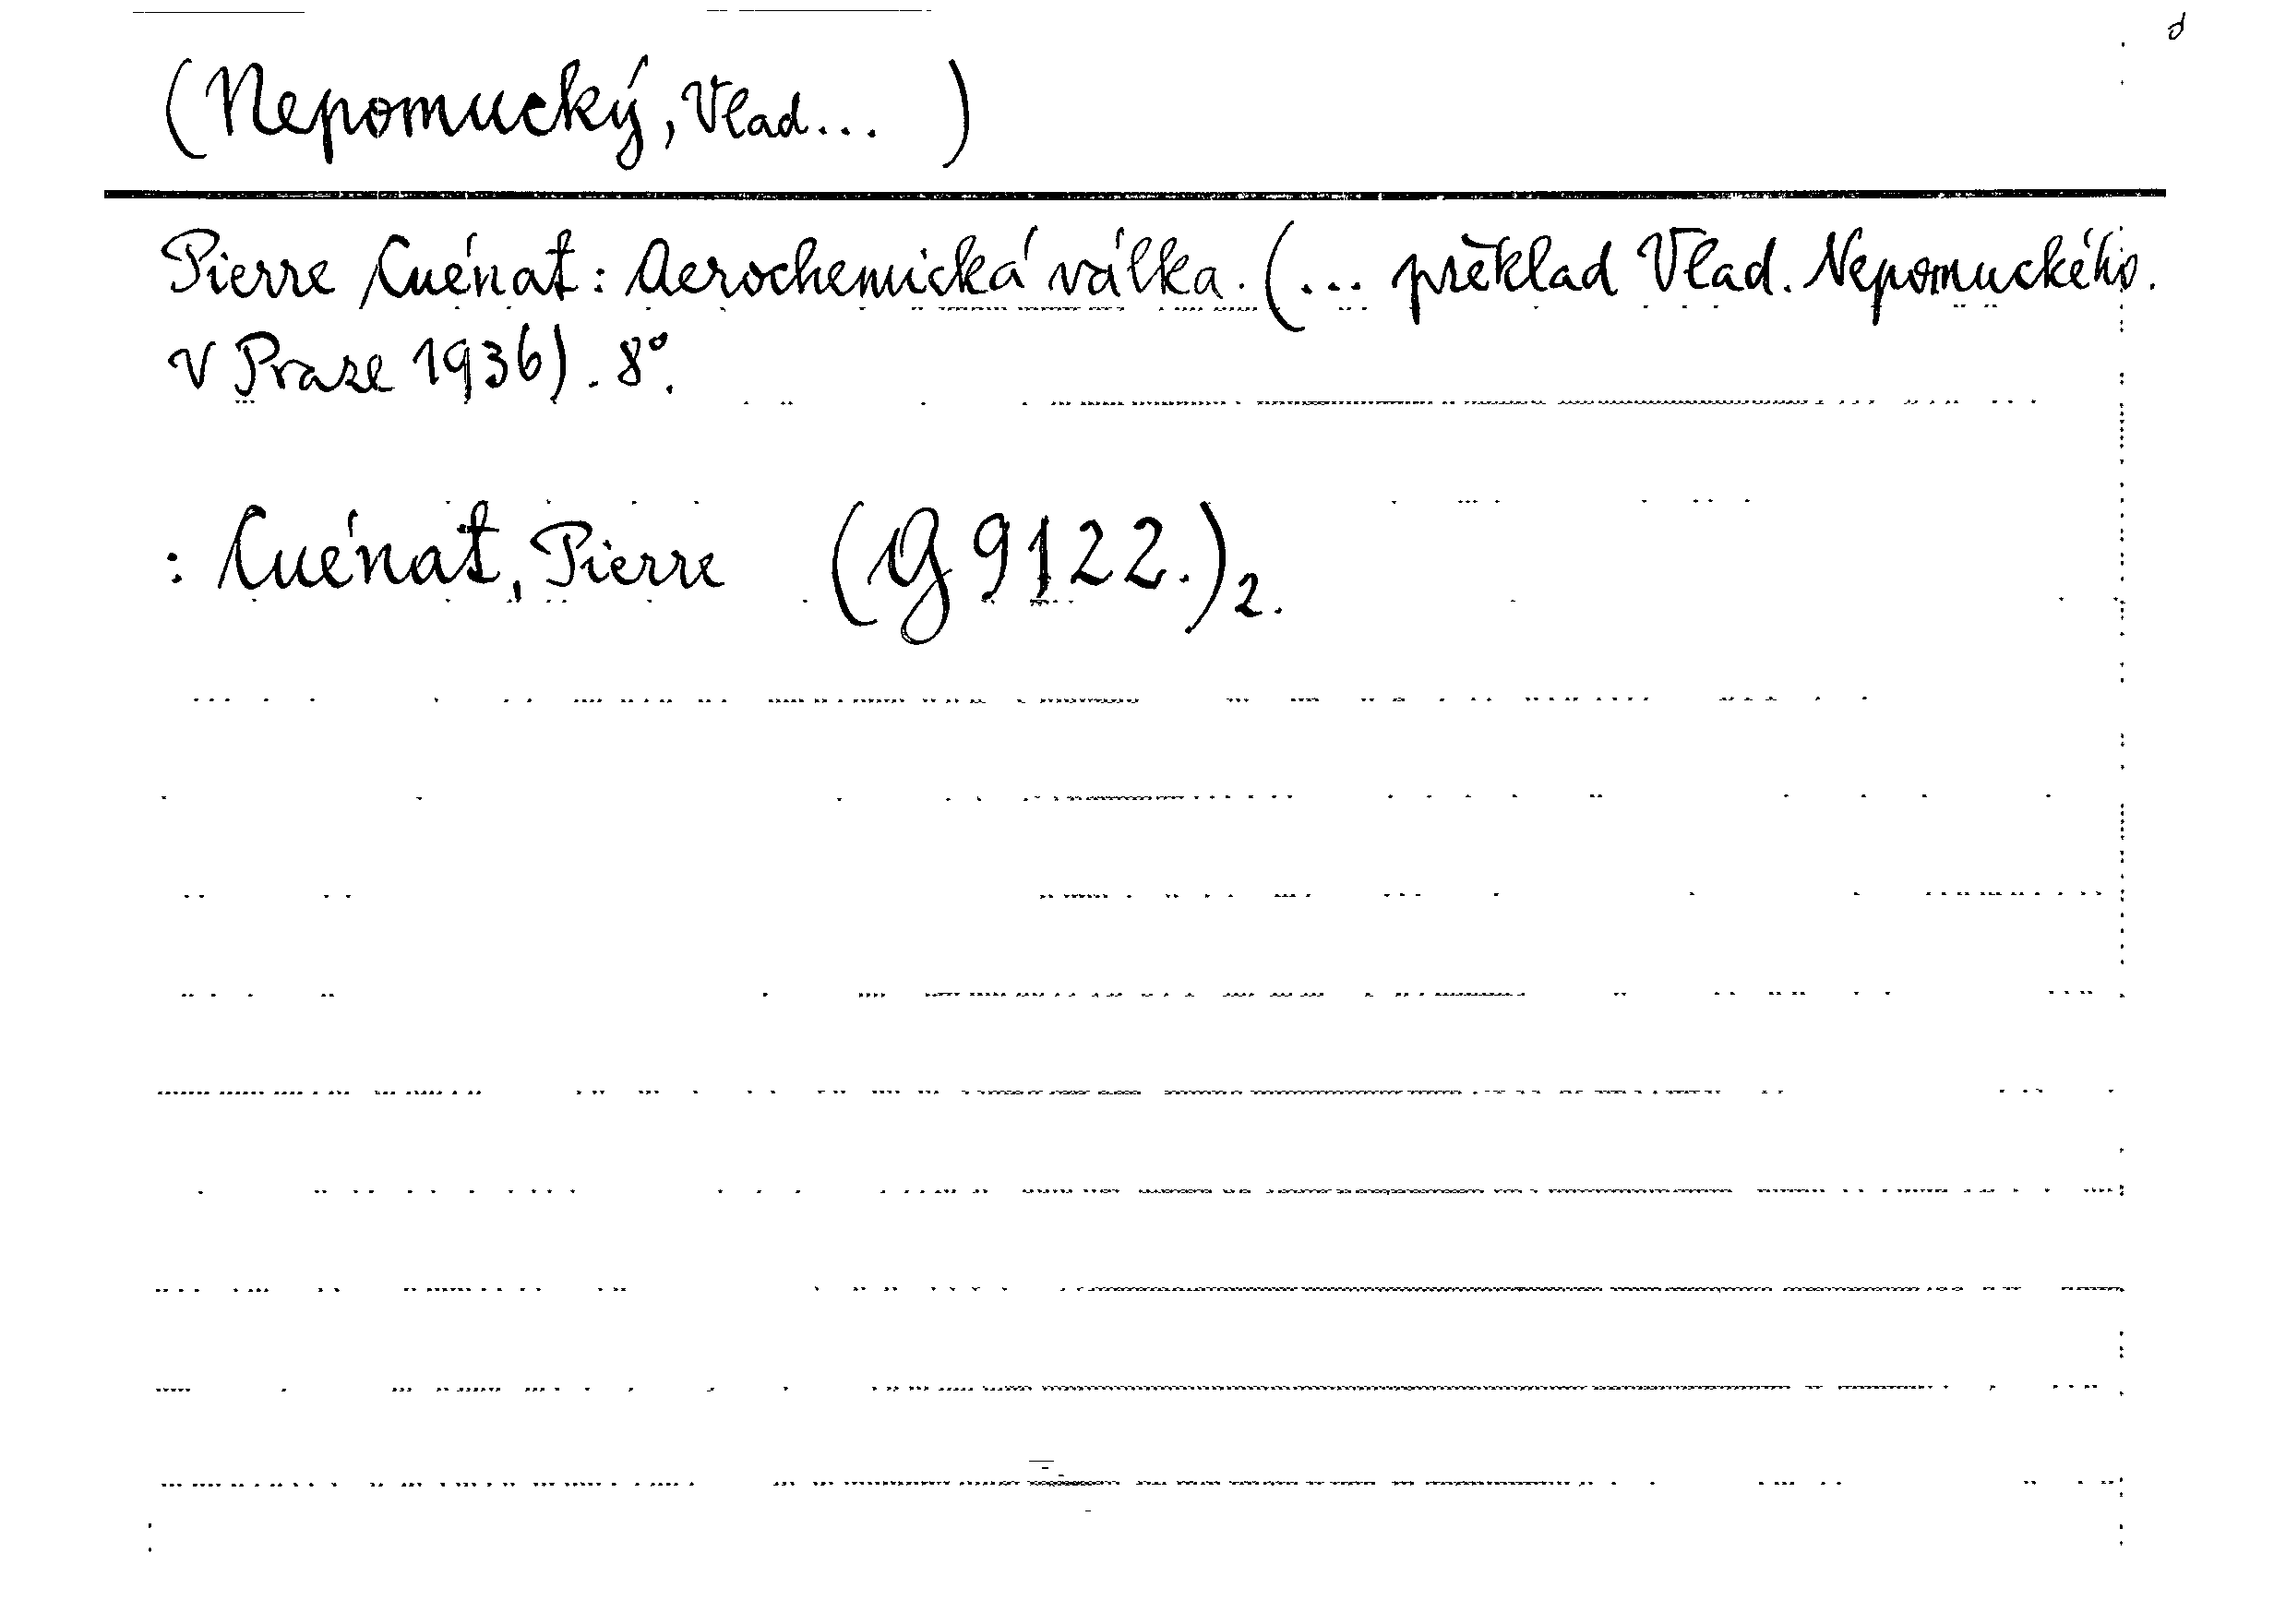 (Nepomucký, Vlad... )
Pierre Cuénat: Aerochemická válka. (... překlad Vlad. Nepomuckého.
V Praze 1936). 8°.
: Cuénat, Pierre (G 9122.)2.